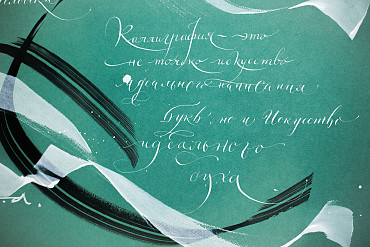 Каллиграфия - это
не только искусство
идеального написания
Букв, но и Искусство
идеального
духа